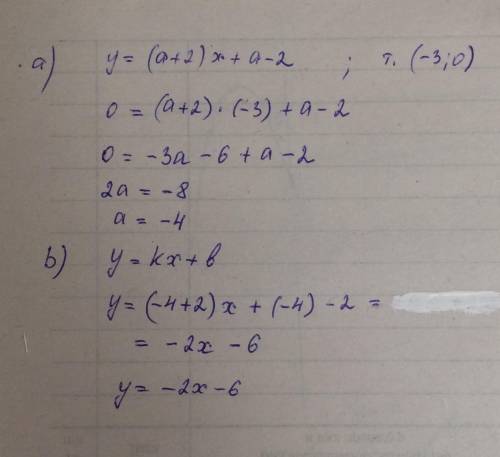 a) y = (a+2)x + a-2 ; т. (-3;0)
0 = (a+2)·(-3) + a-2
0 = -3a - 6 + a - 2
2a = -8
a = -4
b) y = kx + b
y = (-4+2)x + (-4) - 2 =
= -2x - 6
y = -2x - 6